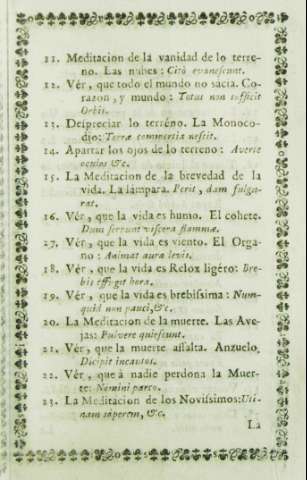 11. Meditacion de la vanidad de lo terre-
no. Las nubes: Citò evanescunt.
12. Vér, que todo el mundo no sacia. Co-
razon, y mundo: Totus non sufficit
Orbis.
13. Despreciar lo terréno. La Monoco-
dio: Terræ commercia nescit.
14. Apartar los ojos de lo terreno: Averte
oculos &c.
15. La Meditacion de la brevedad de la
vida. La lámpara. Perit, dum fulge-
rat.
16. Vér, que la vida es humo. El cohete.
Dum ferrunt viscera flammæ.
17. Vér, que la vida es viento. El Orga-
no: Animat aura levis.
18. Vér, que la vida es Relox ligéro: Bre-
bis effugit hora.
19. Vér, que la vida es brebissima: Nun-
quid non pauci, &c.
20. La Meditacion de la muerte. Las Ave-
jas: Pulvere quiescunt.
21. Vér, que la muerte assalta. Anzuelo.
Dicipit incautos.
22. Vér, que à nadie perdona la Muer-
te: Nemini parco.
23. La Meditacion de los Novissimos: Uti-
nam saperent, &c.
La